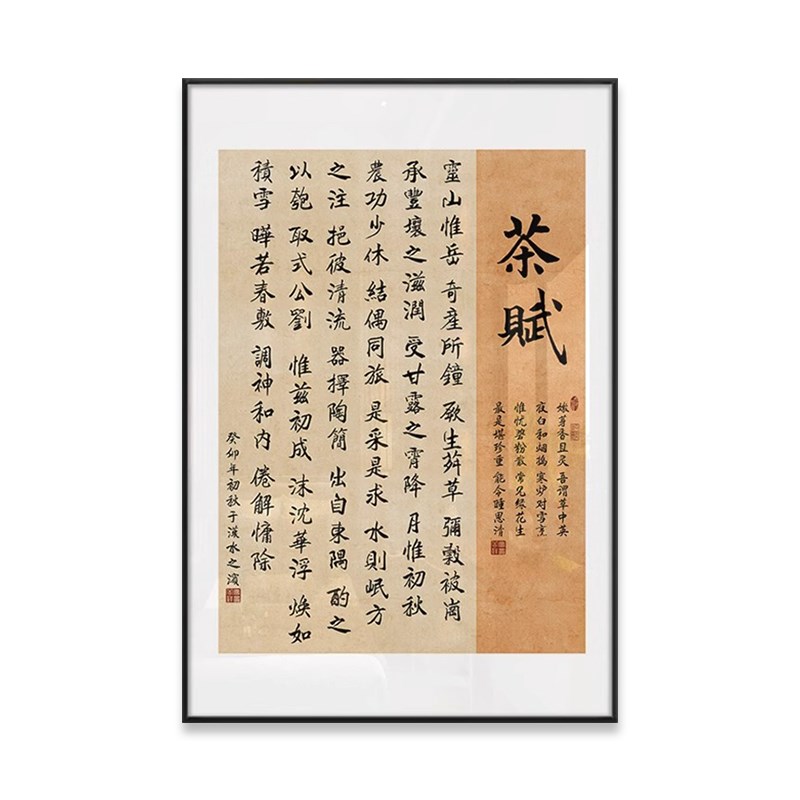 茶賦
嫩芽香且灵 吾谓草中英
夜臼和烟捣 寒炉对雪烹
惟忧碧粉散 常见绿花生
最是堪珍重 能令睡思清
靈山惟岳 奇産所鐘 厥生荈草 彌穀被崗
承豐壤之滋潤 受甘露之霄降 月惟初秋
農功少休 結偶同旅 是采是求 水則岷方
之注 挹彼清流 器擇陶簡 出自東隅 酌之
以匏 取式公劉 惟兹初成 沫沈華浮 焕如
積雪 曄若春敷 調神和内 倦解慵除
癸卯年初秋于漢水之濱